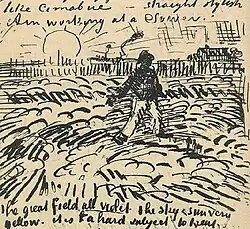 like Cimabue — straight stylish
Am working at a Sower.
the great field all violet the sky & sun very
yellow. it is a hard subject to treat.